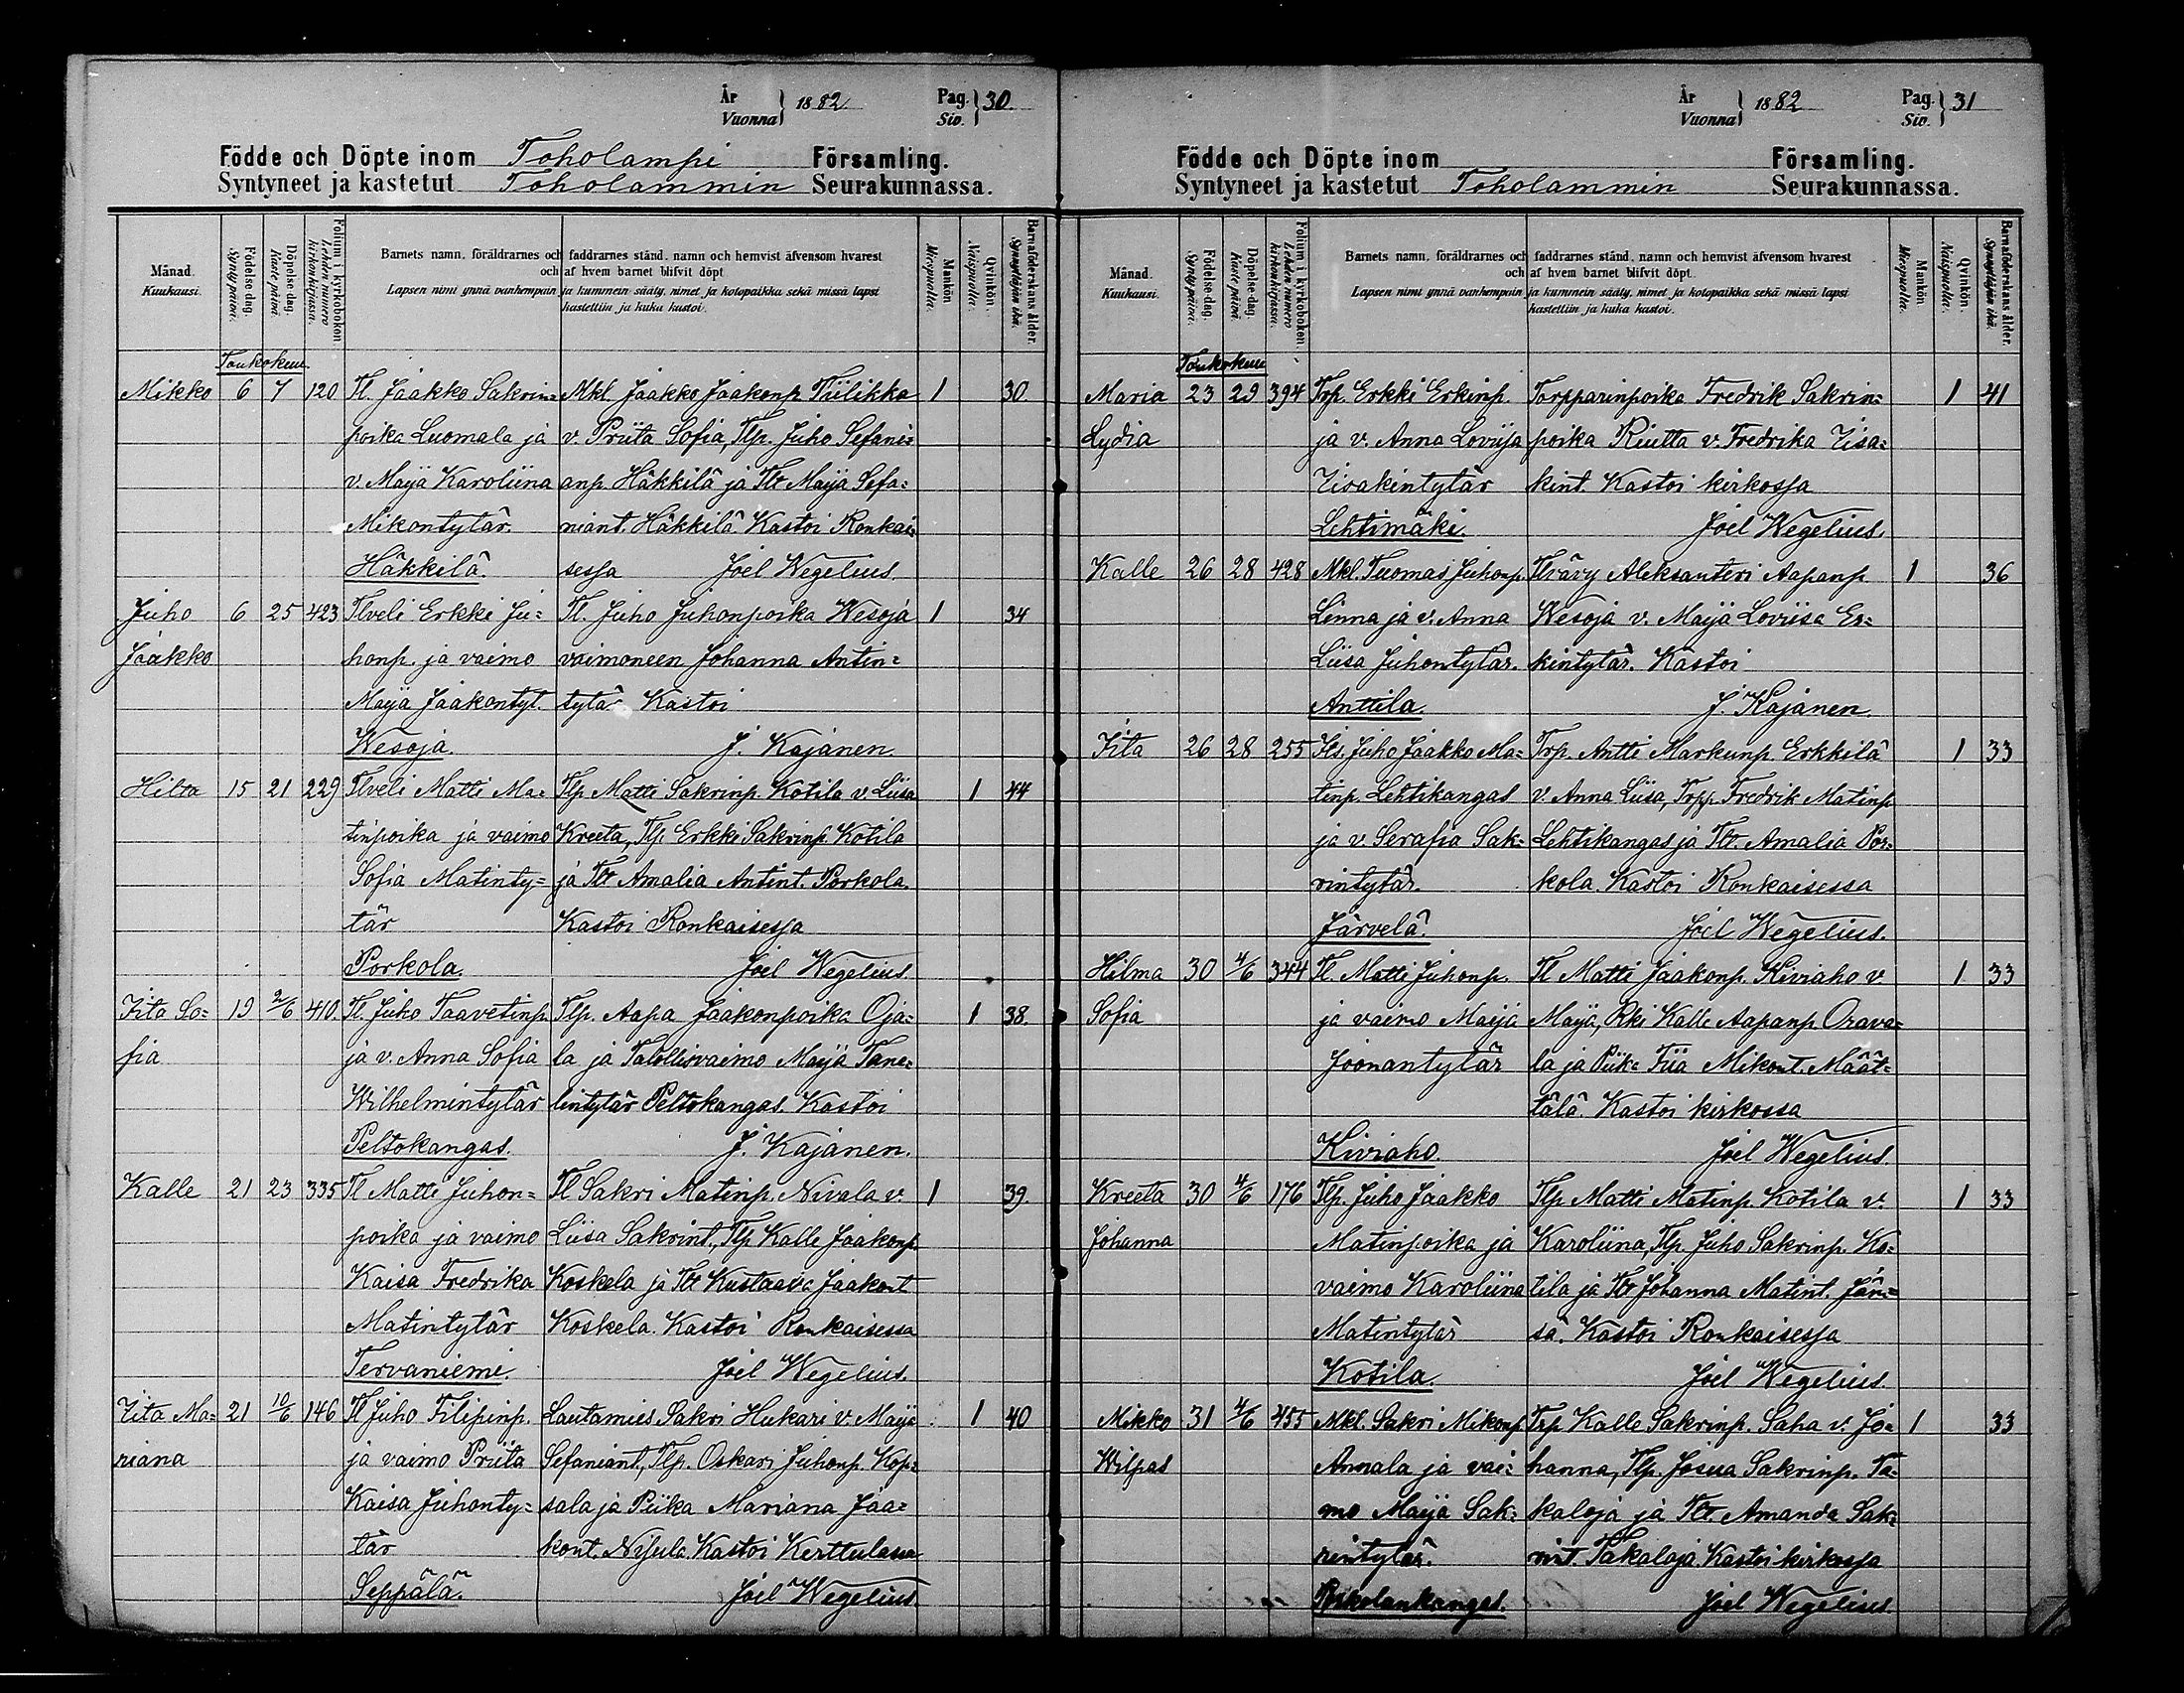 År
Vuonna } 1882. Pag.
Siv. } 30.
Födde och Döpte inom Toholampi Församling.
Syntyneet ja kastetut Toholammin Seurakunnassa.
Månad. Kuukausi. Födelse-dag. Synty päivä. Döpelse-dag. Kaste päivä. Folium i kyrkoboken. Lehden numero kirkonkirjassa. Barnets namn, föräldrarnes och faddrarnes stånd, namn och hemvist äfvensom hvarest
och af hvem barnet blifvit döpt.
Lapsen nimi ynnä vanhempain ja kummein sääty, nimet ja kotopaikka sekä missä lapsi
kastettiin ja kuka kastoi. Mankön. Miespuolta. Qvinkön. Naispuolta. Barnaföderskans ålder. Synnyttäjän ikä.
Toukokuu
Mikko 6 7 120 Tl. Jaakko Sakrin= Mkl. Jaakko Jaakonp. Tiilikka 1 30
poika Luomala ja v. Priita Sofia, Tlp. Juho Sefani=
v. Maija Karoliina anp. Häkkilä ja Tlt Maija Sefa=
Mikontytär. niant. Häkkilä. Kastoi Ronkai=
Häkkilä. sessa Joel Wegelius.
Juho 6 25 423 Tlveli Erkki Ju= Tl. Juho Juhonpoika Wesoja 1 34
Jaakko honp. ja vaimo vaimoneen Johanna Antin=
Maija Jaakontyt. tytär Kastoi
Wesoja. J. Kajanen.
Hilta 15 21 229 Tlveli Matti Ma= Tlp Matti Sakrinp. Kotila v. Liisa 1 44
tinpoika ja vaimo Kreeta, Tlp. Erkki Sakrinp. Kotila
Sofia Matinty= ja Tlt Amalia Antint. Porkola.
tär Kastoi Ronkaisessa
Porkola. Joel Wegelius.
Iita So= 19 2/6 410. Tl. Juho Taavetinp. Tlp. Aapa Jaakonpoika Oja= 1 38.
fia ja v. Anna Sofia la ja Talollisvaimo Maija Tane=
Wilhelmintytär lintytär Peltokangas. Kastoi
Peltokangas. J. Kajanen.
Kalle 21 23 335 Tl Matti Juhon= Tl Sakri Matinp. Nivala v. 1 39.
poika ja vaimo Liisa Sakrint., Tlp Kalle Jaakonp.
Kaisa Fredrika Koskela ja Tlt Kustaava Jaakont
Matintytär Koskela. Kastoi Ronkaisessa
Tervaniemi. Joel Wegelius.
Iita Ma= 21 10/6 146 Tl Juho Filipinp. Lautamies Sakri Hukari v. Maija 1 40
riana ja vaimo Priita Sefaniant., Tlp. Oskari Juhonp. Kop=
Kaisa Juhonty= sala ja Piika Mariana Jaa=
tär kont. Nisula. Kastoi Kerttulassa
Seppälä. Joel Wegelius.
År
Vuonna } 1882 Pag.
Siv. } 31
Födde och Döpte inom Församling.
Syntyneet ja kastetut Toholammin Seurakunnassa.
Månad. Kuukausi. Födelse-dag. Synty päivä. Döpelse-dag. Kaste päivä. Folium i kyrkoboken. Lehden numero kirkonkirjassa. Barnets namn, föräldrarnes och faddrarnes stånd, namn och hemvist äfvensom hvarest
och af hvem barnet blifvit döpt.
Lapsen nimi ynnä vanhempain ja kummein sääty, nimet ja kotopaikka sekä missä lapsi
kastettiin ja kuka kastoi. Mankön. Miespuolta. Qvinkön. Naispuolta. Barnaföderskans ålder. Synnyttäjän ikä.
Toukokuu
Maria 23 29 394 Trp. Erkki Erkinp. Torpparinpoika Fredrik Sakrin= 1 41
Lydia ja v. Anna Loviisa poika Riutta v. Fredrika Iisa=
Iisakintytär kint. Kastoi kirkossa
Lehtimäki. Joel Wegelius.
Kalle 26 28 428 Mkl. Tuomas Juhonp. Tlvävy Aleksanteri Aapanp 1 36
Linna ja v. Anna Wesoja v. Maija Loviisa Er=
Liisa Juhontytär. kintytär. Kastoi
Anttila. J. Kajanen.
Iita 26 28 255 Its. Juho Jaakko Ma= Trp. Antti Markunp. Erkkilä 1 33
tinp. Lehtikangas v. Anna Liisa, Trpp. Fredrik Matinp
ja v. Serafia Sak= Lehtikangas ja Tlt. Amalia Por=
rintytär. kola. Kastoi Ronkaisessa
Järvelä. Joel Wegelius.
Hilma 30 4/6 344 Tl Matti Juhonp. Tl Matti Jaakonp. Kiviaho v. 1 33
Sofia ja vaimo Maija Maija, Rki Kalle Aapanp. Orava=
Joonantytär la ja Piik= Fiia Mikont. Määt=
tälä. Kastoi kirkossa
Kiviaho. Joel Wegelius.
Kreeta 30 4/6 176 Tlp. Juho Jaakko Tlp Matti Matinp. Kotila v. 1 33
Johanna Matinpoika ja Karoliina, Tlp. Juho Sakrinp. Ko=
vaimo Karoliina tila ja Tlt Johanna Matint. Jän=
Matintytär sä. Kastoi Ronkaisessa
Kotila. Joel Wegelius.
Mikko 31 4/6 455 Mkl. Sakri Mikonp. Trp Kalle Sakrinp. Saha v. Jo= 1 33
Wilpas Annala ja vai= hanna, Tlp. Josua Sakrinp. Ta=
mo Maija Sak= kaloja ja Tlt. Amanda Sak=
rintytär. rint. Takaloja. Kastoi kirkossa
Porkolankangas. Joel Wegelius.